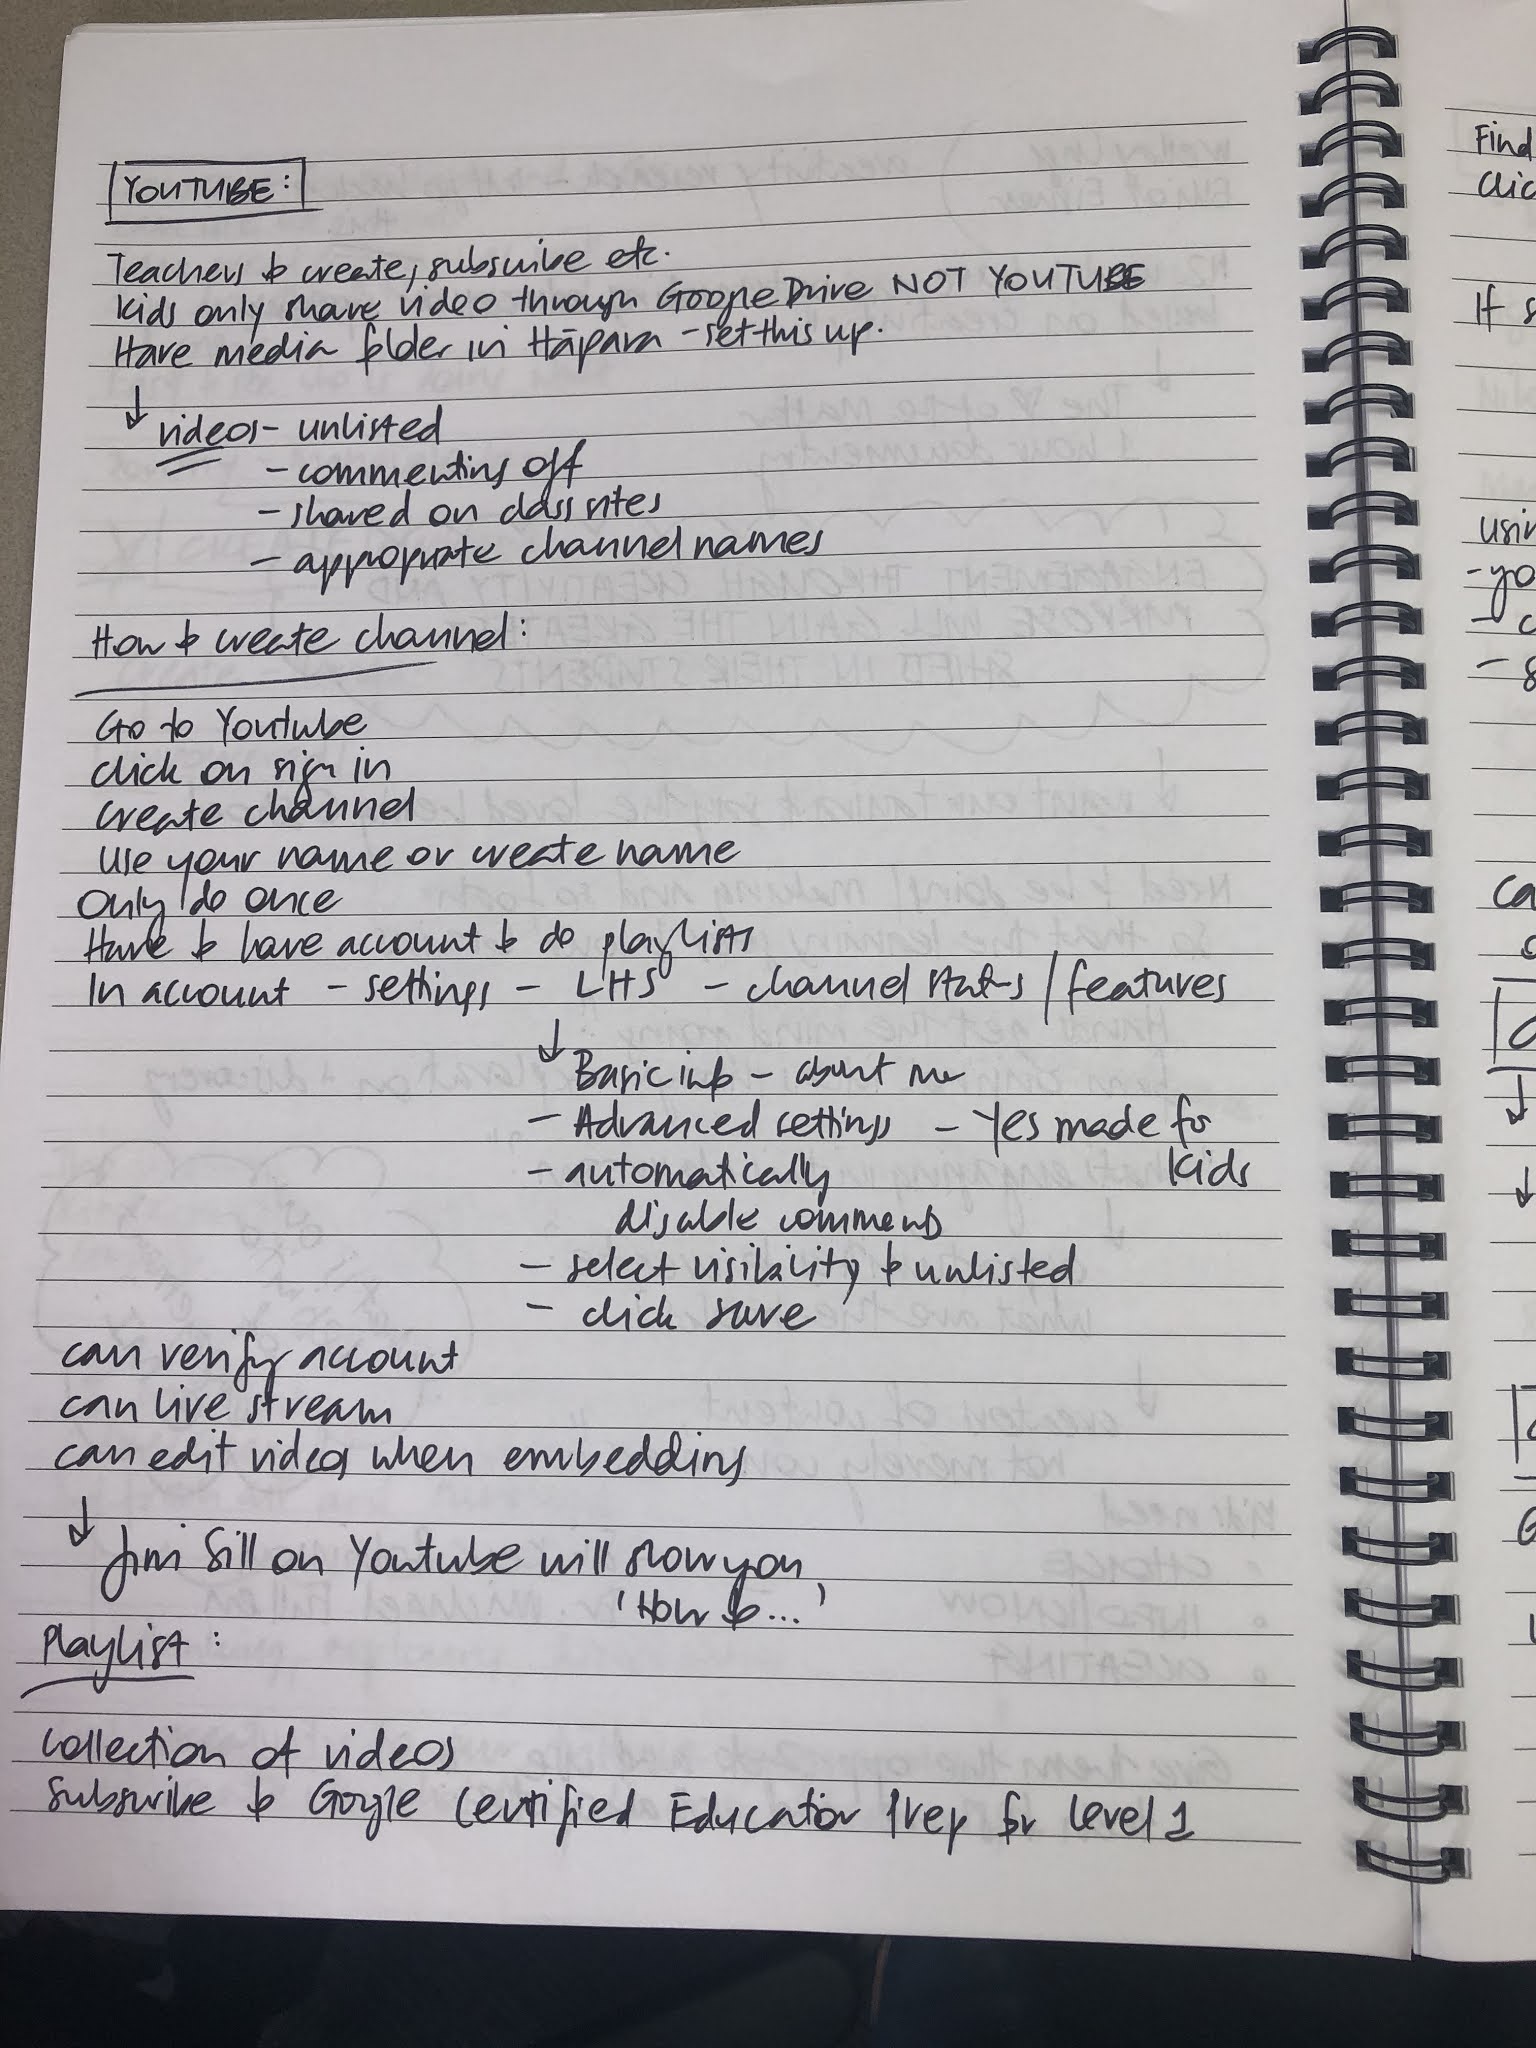 YOUTUBE:
Teachers to create, subscribe etc.
Kids only share video through Google Drive NOT YOUTUBE
Have media folder in Hāpara - set this up.
↓ videos - unlisted
- commenting off
- shared on class sites
- appropriate channel names
How to create channel:
Go to Youtube
click on sign in
create channel
use your name or create name
Only do once
Have to have account to do playlists
In account - settings - LHS - channel status / features
↓ Basic info - about me
- Advanced settings - Yes made for
kids
- automatically
disable comments
- select visibility to unlisted
- click save
can verify account
can live stream
can edit videos when embedding
↓ Jim Sill on Youtube will show you
'How to...'
Playlist:
collection of videos
Subscribe to Google Certified Educator Prep for Level 1
Find
Clic
If s
usin
- yo
- c
- s
Ca